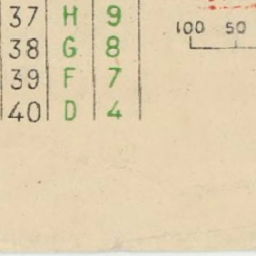 37 H 9
38 G 8
39 F 7
40 D 4
100 50